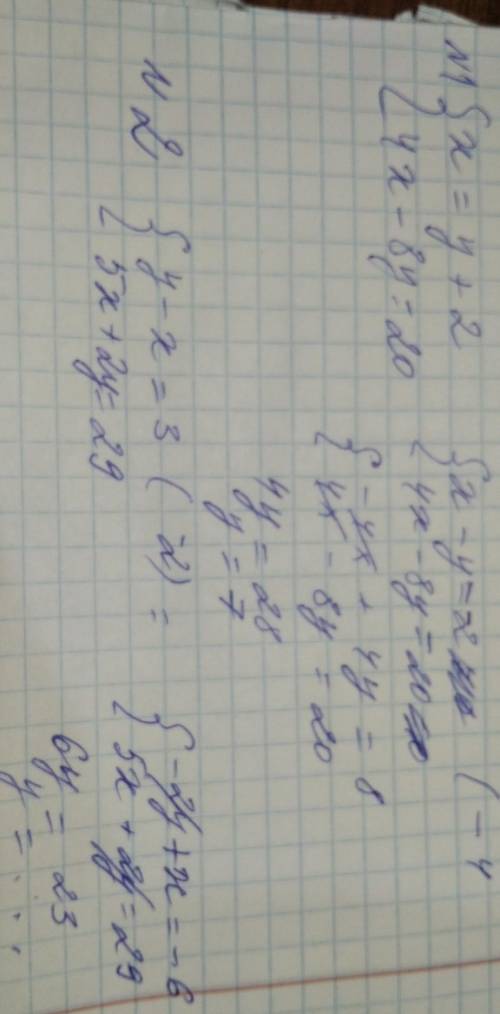 N1 { x = y + 2
4x - 8y = 20
{ x - y = 2 ( -4
4x - 8y = 20
{ -4x + 4y = 8
4x - 8y = 20
4y = 28
y = 7
N2 { y - x = 3 ( 2) =
5x + 2y = 29
{ -2y + x = -6
5x + 2y = 29
6y = 23
y = ....